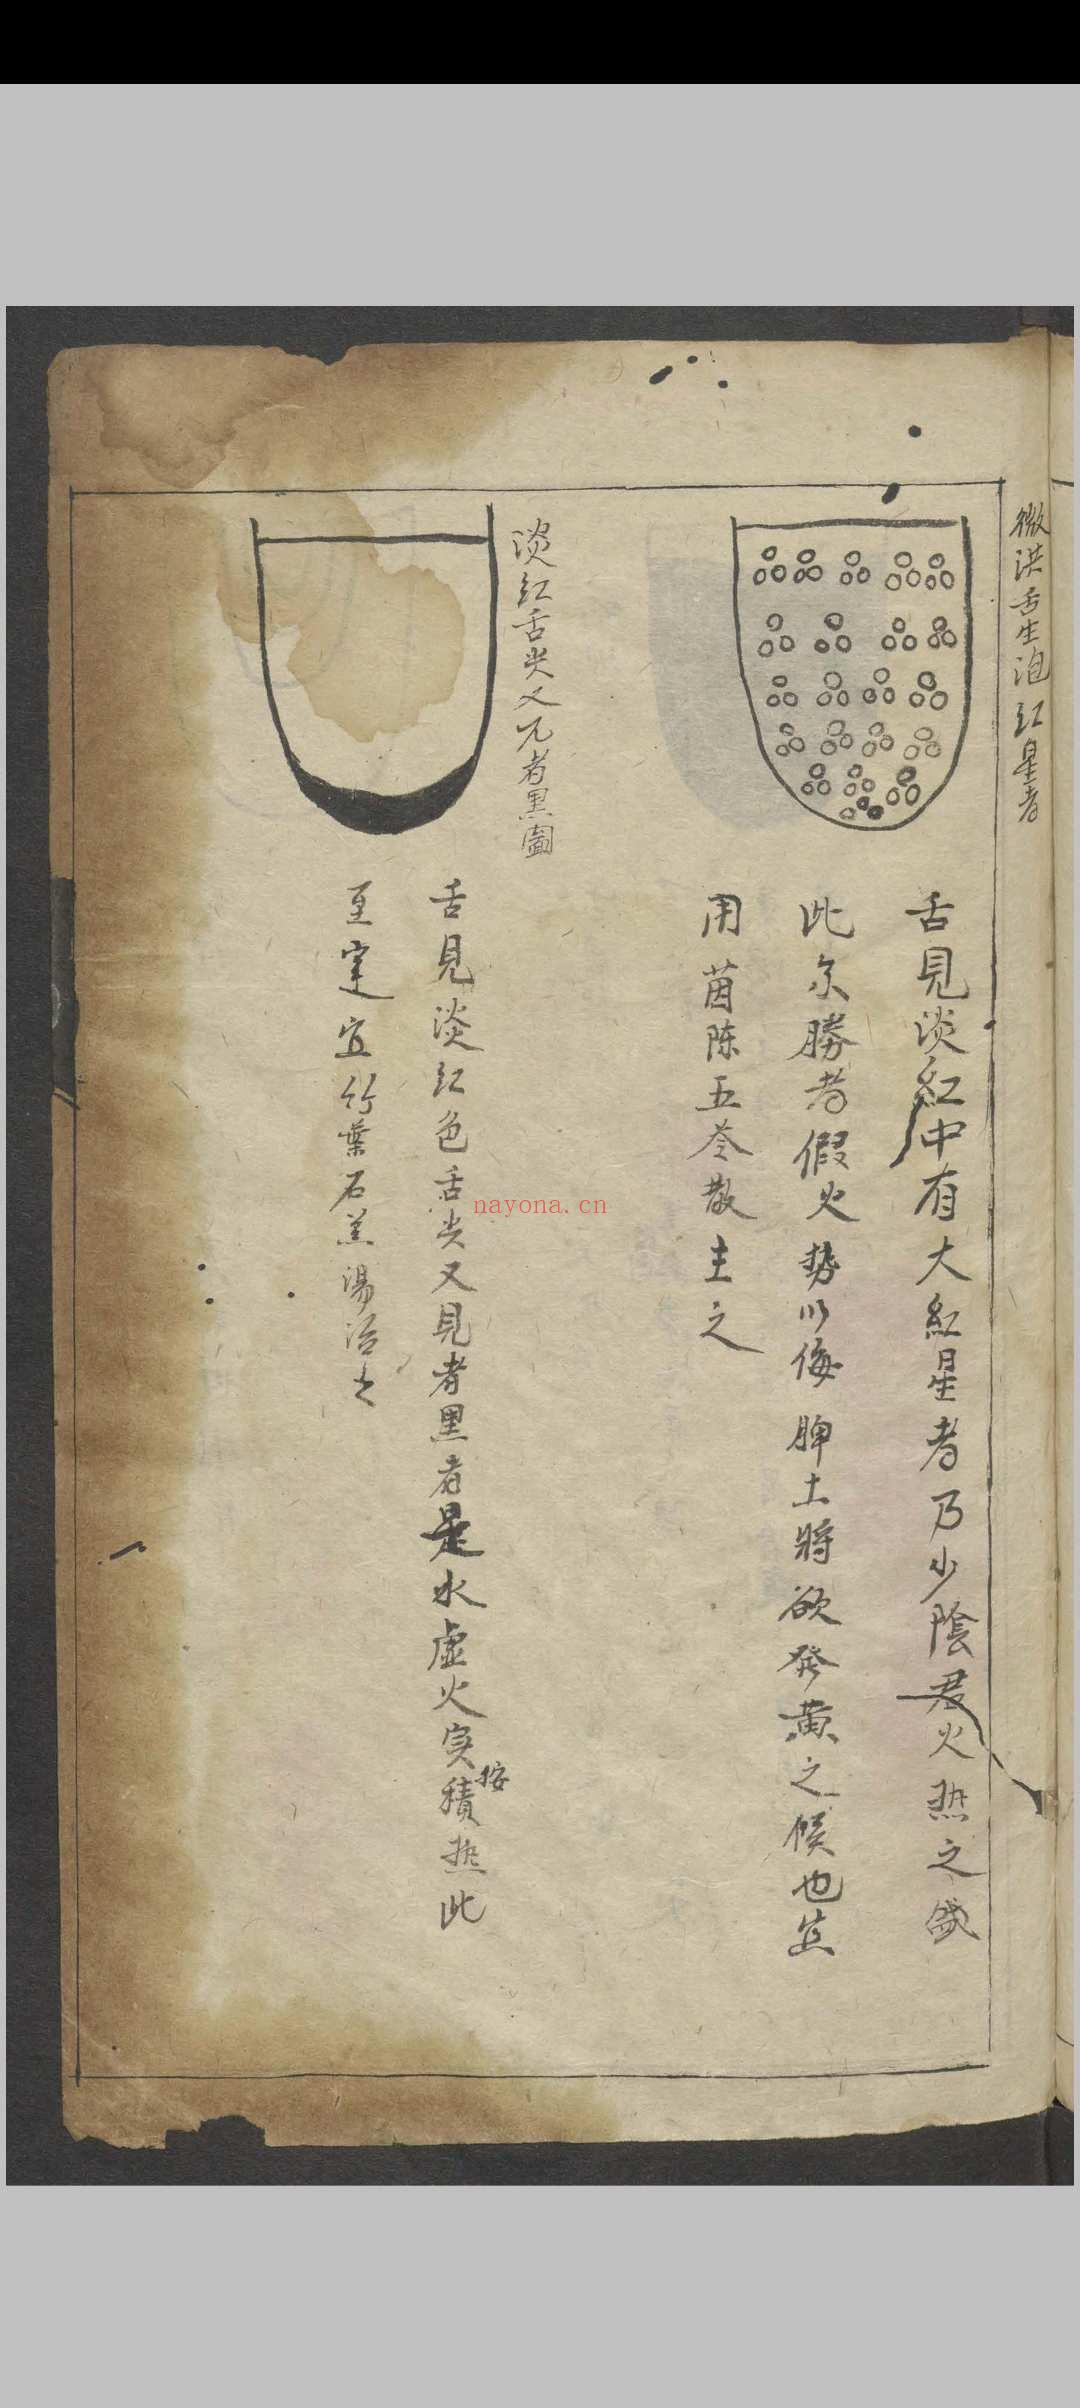 微洪舌生泡红星者
舌見淡紅中有大紅星者乃少陰君火热之盛
此尔勝者假火势以侮脾土將欲發黄之候也宜
用茵陈五苓散主之
淡红舌尖又者黑圖
舌見淡红色舌尖又見者黑者是水虚火实積热此
按
至宜竹葉石羔湯治之
nayona.cn